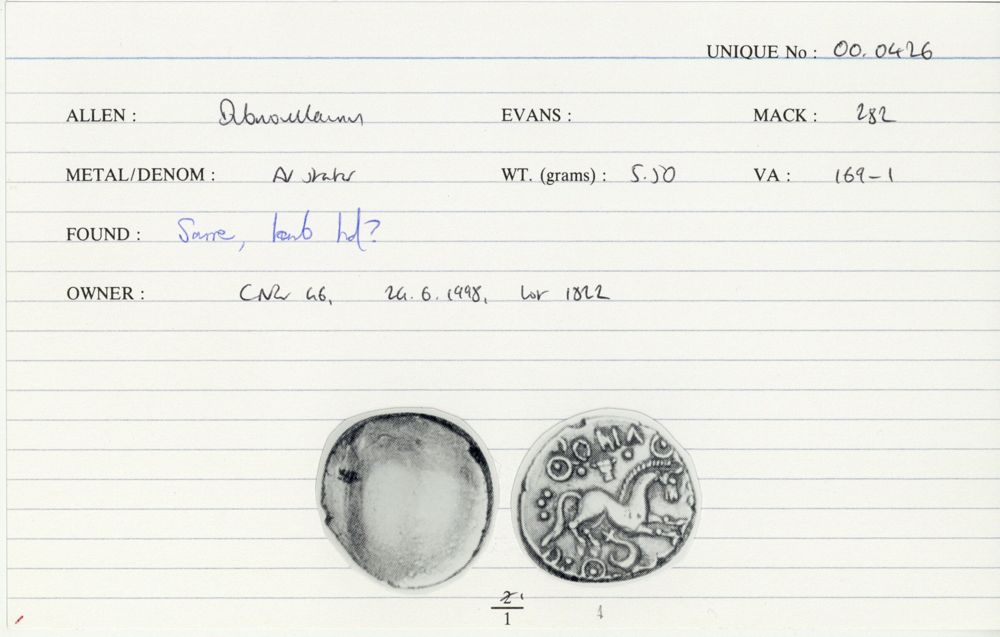 UNIQUE No : 00.0426
ALLEN : Dubnovellaunus EVANS : MACK : 282
METAL/DENOM : AV stater WT. (grams) : 5.50 VA : 169-1
FOUND : Sarre, hd?
OWNER : CNR 46, 24.6.1998, lot 1822
2
1